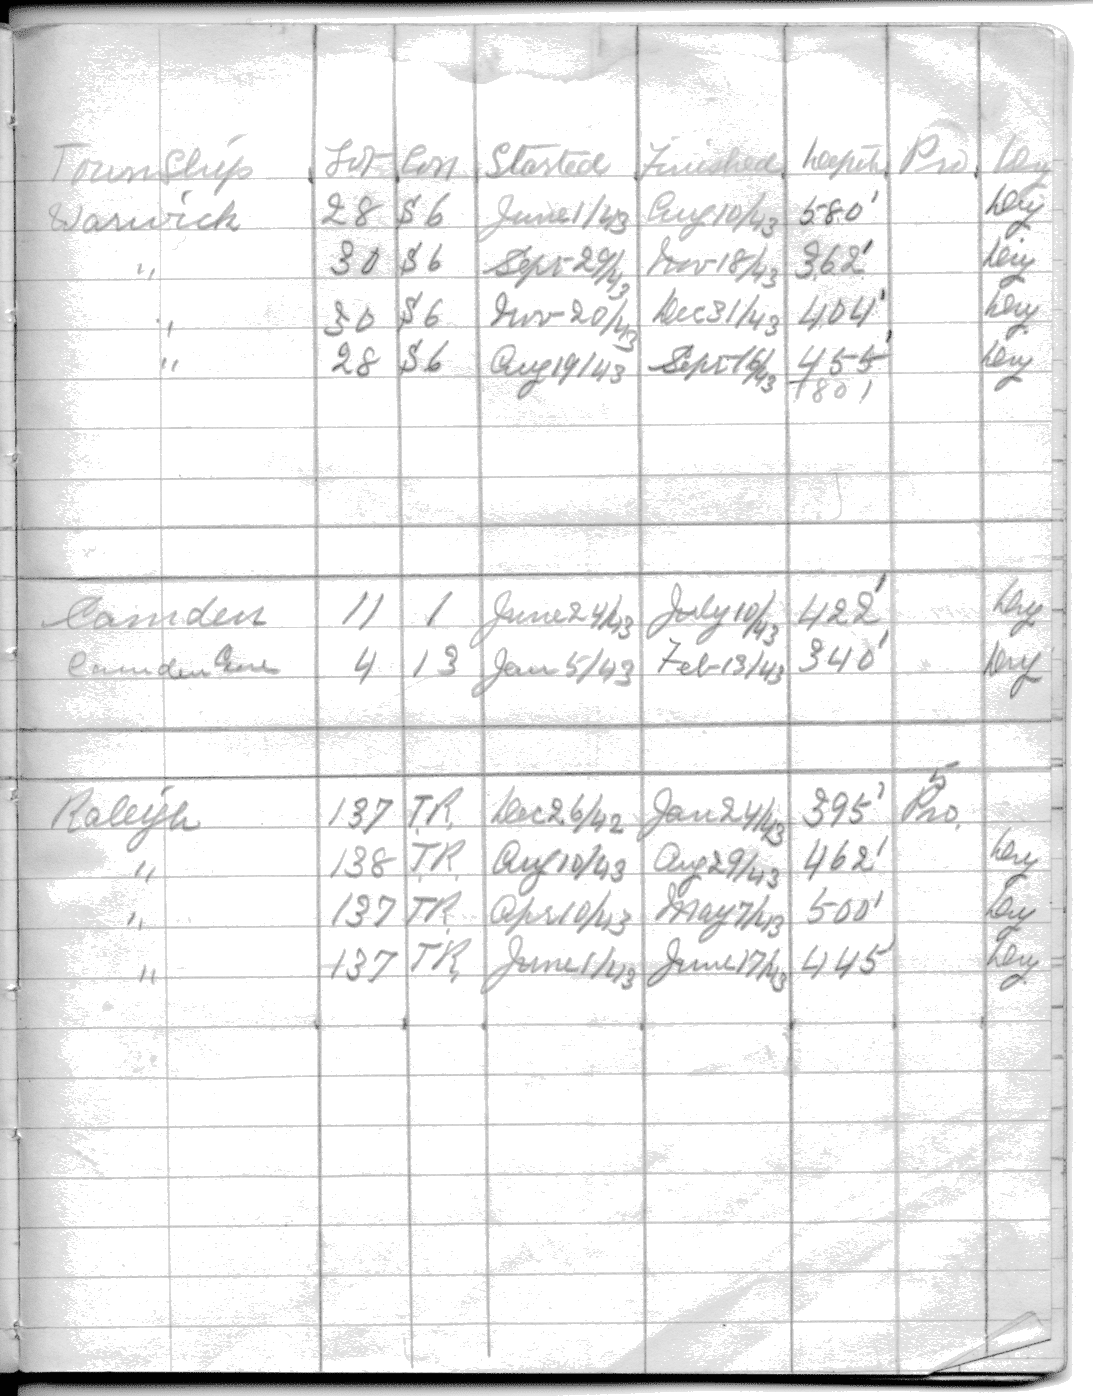 Township Lot Con Started Finished Depth Pro Dry
Warwick 28 $6 June 1/43 Aug 10/43 580' Dry
" 30 $6 Sept 29/43 Nov 18/43 362' Dry
" 30 $6 Nov 20/43 Dec 31/43 404' Dry
" 28 $6 Aug 19/43 Sept 16/43 455' Dry
1801
Camden 11 1 June 24/43 July 10/43 422' Dry
Camden Gore 4 13 Jan 5/43 Feb 13/43 340' Dry
5
Raleigh 137 T.R. Dec 26/42 Jan 24/43 395' Pro.
" 138 T.R. Aug 10/43 Aug 29/43 462' Dry
" 137 T.R. Apr 10/43 May 7/43 500' Dry
" 137 T.R. June 1/43 June 17/43 445' Dry